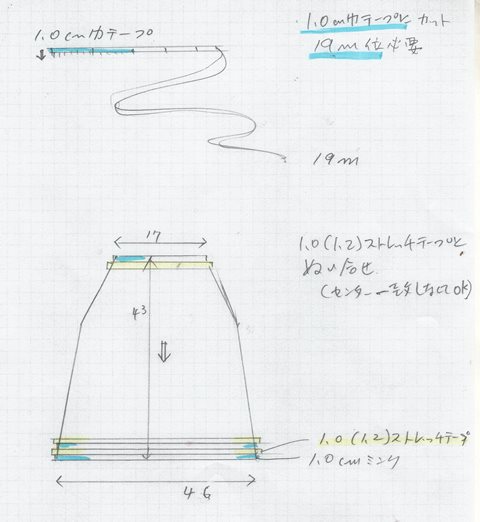 1.0cm巾テープ
1.0cm巾テープにカット
19m位必要
19m
17
1.0(1.2)ストレッチテープと
ぬい合せ
(センター一致しなくてOK)
43
1.0(1.2)ストレッチテープ
1.0cmミンク
46